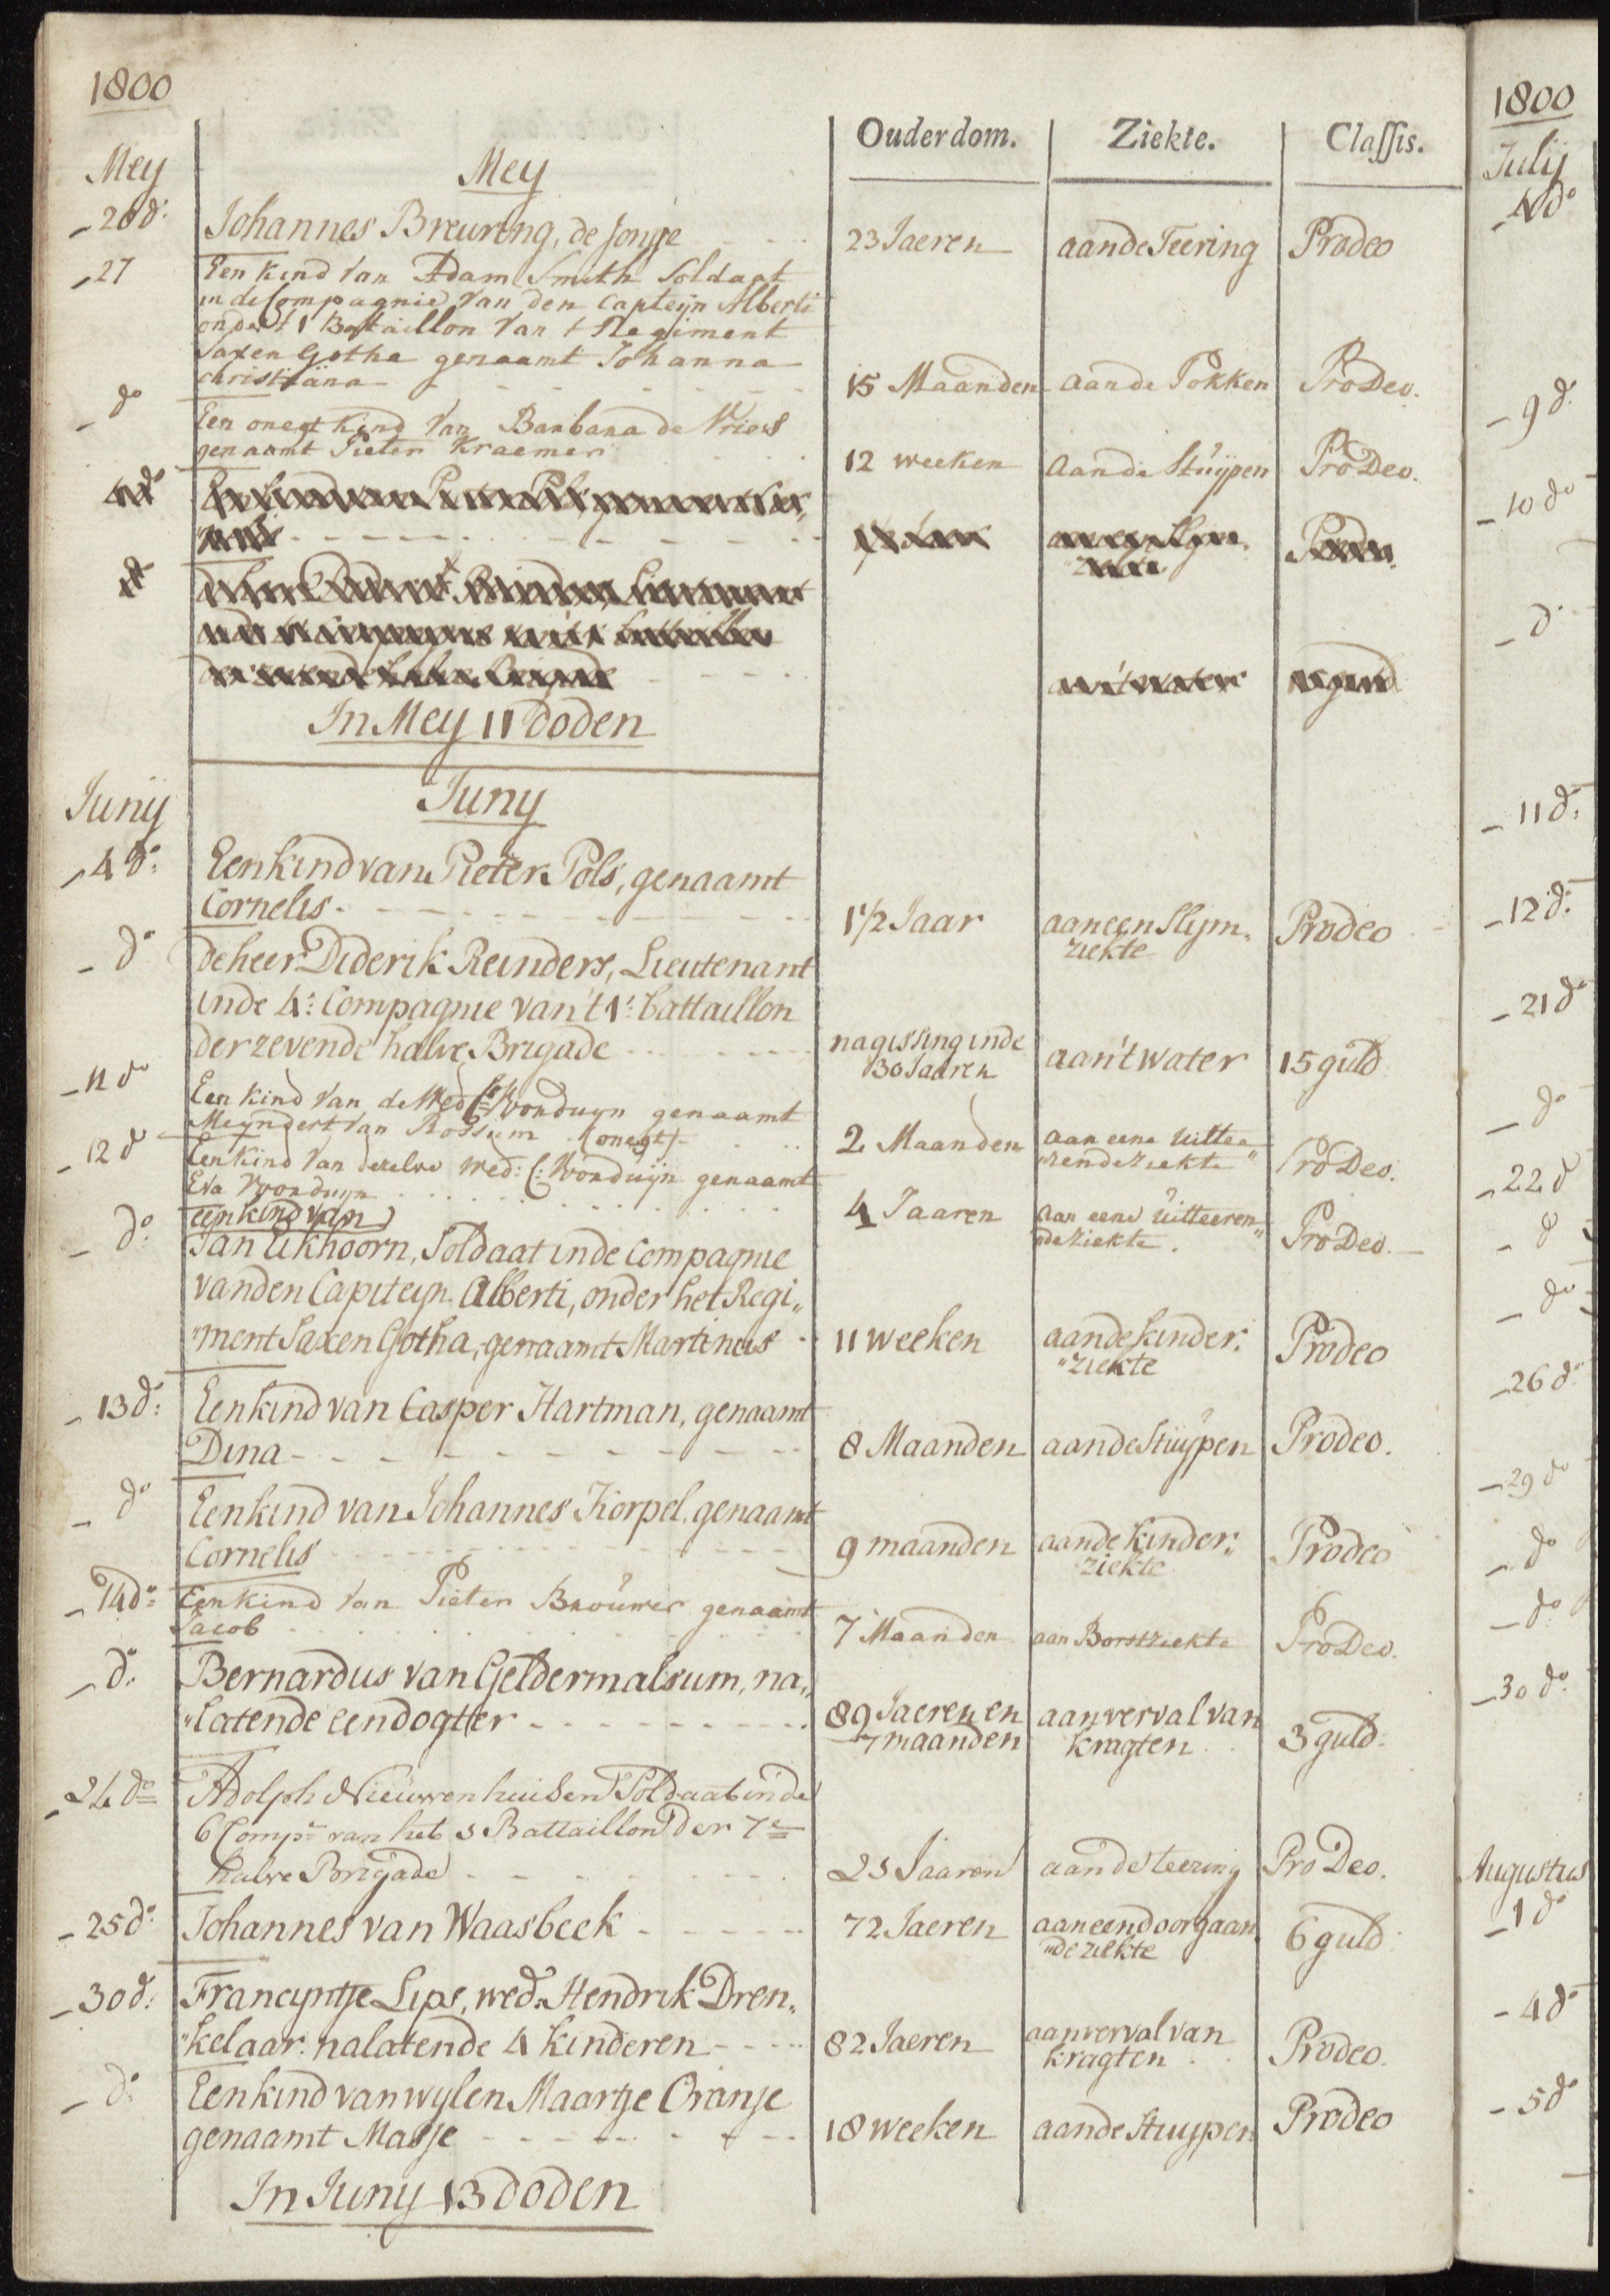 1800
Ouderdom. Ziekte. Classis.
Mey Mey
- 20 do: Johannes Breuring, de Jonge 23 Jaeren aan de Teering Prodeo
- 27 Een kind Van Adam Smith Soldaat
in de Compagnie Van den Capteijn Alberti
onder 't 1 Battaillon Van t Regiment
Saxen Gotha genaamt Johanna
christiäna 15 Maanden aan de Pokken ProDeo.
- do Een onegt Kind Van Barbara de Vries
genaamt Pieter Kraemer 12 weeken aan de Stuÿpen ProDeo.
In Mey 11 doden
Juny Juny
- 4 do: Een kind van Pieter Pols, genaamt
Cornelis 1 1/2 Jaar aan een Slijm-
ziekte Prodeo
- do de heer Diderik Reinders, Lieutenant
in de 4e Compagnie van 't 1e battaillon
der zevende halve Brigade na gissing in de
30 Jaaren aan 't water 15 guld
- 11 do Een kind Van de Wed: Vonduyn genaamt
Meyndert Van Rossum (onegt) 2 Maanden aan eene uittee
"rende ziekte" ProDeo.
- 12 do Een kind Van dezelve Wed: C: Vonduijn genaamt
Eva Vonduyn 4 Jaaren aan eene uitteeren"
"de ziekte. ProDeo.
- do: een kind van
Jan Eikhoorn, Soldaat in de Compagnie
van den Capiteyn Alberti, onder het Regi"
"ment Saxen Gotha, genaamt Martinus 11 weeken aan de kinder:
"ziekte Prodeo
- 13 do: Een kind van Casper Hartman, genaamt
Dina 8 Maanden aan de Stuÿpen Prodeo.
- do Een kind van Johannes Korpel, genaamt
Cornelis 9 maanden aan de kinder:
ziekte Prodeo
- 14 do: Een kind Van Pieter Brouwer genaamt
Jacob 7 Maanden aan Borstziekte ProDeo.
- do: Bernardus van Geldermalsum, na"
"latende een dogter 89 Jaeren en
7 maanden aan verval van
kragten 3 guld:
- 24 do Adolph Nieuwenhuisen Soldaat in de
6 Compe van het 3 Battaillon der 7e
halve Brigade 23 Jaaren aan de teering Pro Deo.
- 25 do Johannes van Waasbeek 72 Jaeren aan een doorgaan
"de ziekte 6 guld
- 30 do: Francyntje Lips, wed: Hendrik Dren"
"kelaar: nalatende 4 kinderen 82 Jaeren aan verval van
kragten Prodeo.
- do: Een kind van wylen Maartje Oranje
genaamt Masje 18 weeken aan de Stuypen Prodeo
In Juny 13 doden
1800
Julij
- do
- 9 do
- 10 do
- do
- 11 do:
- 12 do:
- 21 do
- do
- 22 do
- do
- do
- 26 do
- 29 do
- do
- do
- 30 do
Augustus
- 1 do
- 4 do
- 5 do